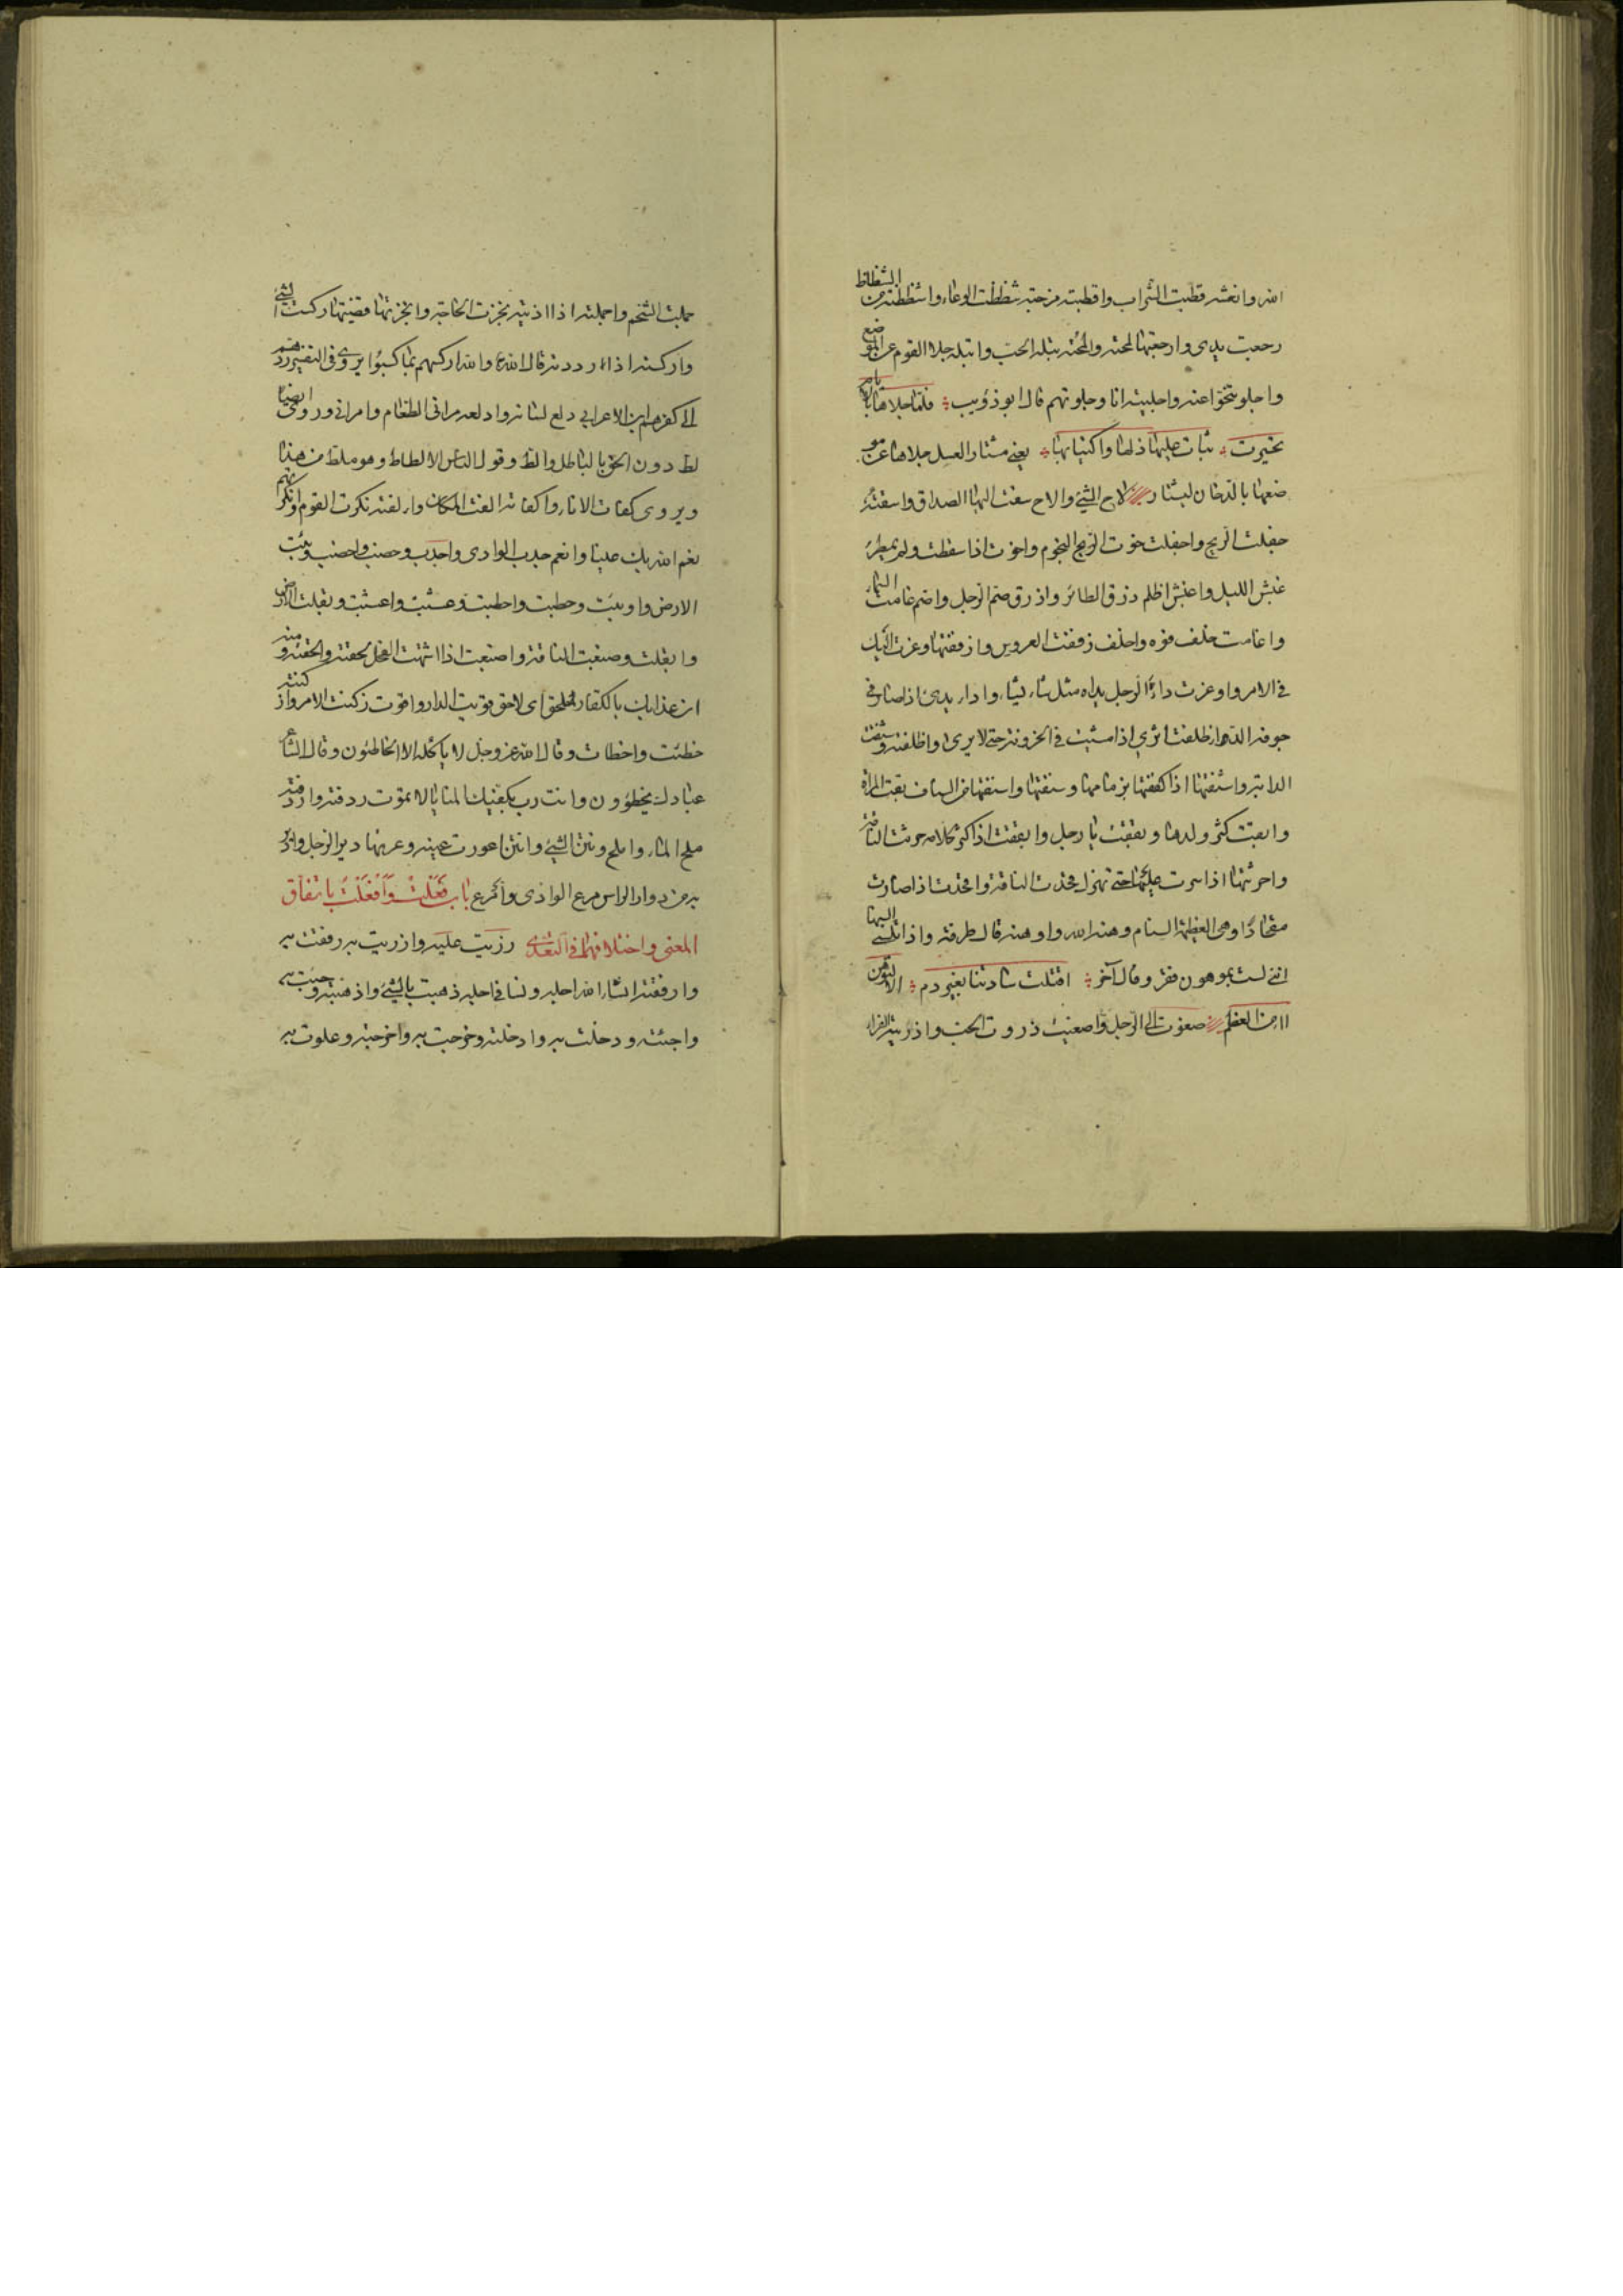 الله وانعشه قطبت الشراب واقطبته مزجته شظظت الوعاء واشظظته من الشظاظ
رجعت يدى وارجعتها لمحته والمحته بتله الحب وابتله جلا القوم عن الموضع
واجلو تنحوا عنه واجليته انا وجلوتهم قال ابو ذؤيب فلما جلاها بالايام
تحيرت ثبات عليها ذلها واكتئابها يعنى مشتار العسل جلاها عن مو
ضعها بالدخان ليشتار لاح الشئ والاح سقت اليها الصداق واسقته
جفلت الريح واجفلت خوت النجوم واخوت اذا سقطت ولم تمطر
غبش الليل واغبش اظلم ذرق الطائر واذرق صم الرجل واصم غامت السماء
واغامت خلف فوه واخلف زففت العروس وازففتها وعزت اليك
فى الامر واوعزت داء الرجل يداء مثل شاء يشاء واداء يدئ اذا صار فى
جوفه الداء ظلفت اثرى اذا مشيت فى الحزونة حتى لا يرى واظلفته وشنقت
الدابة واشنقتها اذا كففتها بزمامها وسنفتها واسنفتها من السناف بقت المراة
وابقت كثر ولدها وبققت يا رجل وابققت اذا كثر كلامه حرثت الناقة
واحرثتها اذا سرت عليها حتى تهزل مجدت الناقة وامجدت اذا صارت
مقحادا وهى العظيمة السنام وهنه الله واوهنه قال طرفة واذا تلسننى السنها
اننى لست بموهون فقر وقال آخر اقتلت سادتنا بغير دم الا لتوهن
امن العظم صغوت الى الرجل واصغيت ذروت الحب واذريته الفراء
جملت الشحم واجملته اذا اذبته نجزت الحاجة وانجزتها قضيتها ركست الشئ
واركسته اذا رددته قال الله والله اركسهم بما كسبوا يروى فى التفسير ردهم
الى كفرهم ابن الاعرابى دلع لسانه وادلعه مرانى الطعام وامرانى وروى ايضا
لط دون الحق بالباطل والط وقول الناس الالطاط وهو ملط من هذا
ويروى كفات الاناء واكفاته الفت المكان والفته نكرت القوم وانكرتهم
نعم الله بك عينا وانعم جدب الوادى واجدب وخصب واخصب وبئت
الارض واوبئت وحطبت واحطبت وعشبت واعشبت وبقلت الارض
وابقلت وضبعت الناقة واضبعت اذا اشتهت الفحل لحقته والحقته ومنه
ان عذابك بالكفار ملحق اى لاحق قويت الدار واقوت زكنت الامر وازكنته
خطئت واخطات وقال الله عز وجل لا ياكله الا الخاطئون وقال الشاعر
عبادك يخطؤون وانت رب بكفيك المنايا لا تموت ردفته واردفته
ملح الماء واملح ونتن الشئ وانتن اعورت عينه وعرتها دير الرجل وادير
به من دوار الراس مرع الوادى وامرع باب فعلت وافعلت باتفاق
المعنى واختلافهما فى التعدى زريت عليه وازريت به رفقت به
وارفقته انسا الله اجله ونسا فى اجله ذهبت بالشئ واذهبته وجئت به
واجئته ودخلت به وادخلته وخرجت به واخرجته وعلوت به